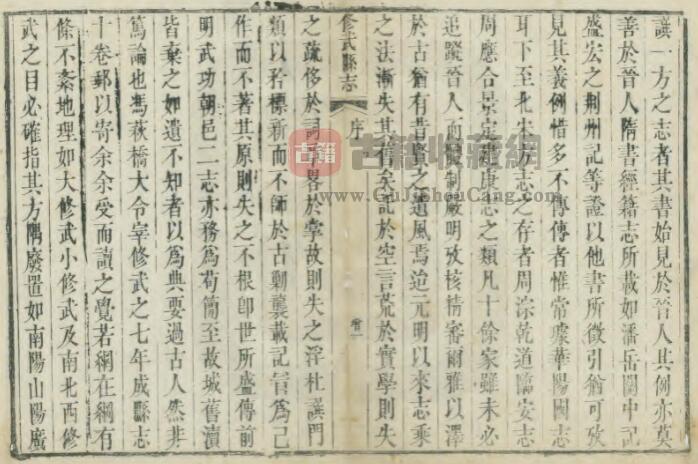 譔一方之志者其書始見於晉人其例亦莫
善於晉人隋書經籍志所載如潘岳關中記
盛宏之荆州記等證以他書所徵引猶可攷
見其義例惜多不傳傳者惟常璩華陽國志
耳下至北宋方志之存者周淙乾道臨安志
周應合景定建康志之類凡十餘家雖未必
追蹤晉人而體制嚴明攷核精審爾雅以澤
於古猶有昔賢之遺風焉迨元明以來志乘
之法漸失其舊矣記於空言荒於實學則失
修武縣志
序
卷一
之疏侈於詞章畧於掌故則失之浮杜譔門
類以矜標新而不師於古剿襲載記旨為己
作而不著其原則失之不根卽世所盛傳前
明武功朝邑二志亦務為苟簡至故城舊瀆
皆棄之如遺不知者以為典要過古人然非
篤論也馮萩橋大令宰修武之七年成縣志
十卷郵以寄余余受而讀之覺若網在綱有
條不紊地理如大修武小修武及南北西修
武之目必確指其方隅廢置如南陽山陽廣
古籍收藏網
www.GuJiShouCang.com